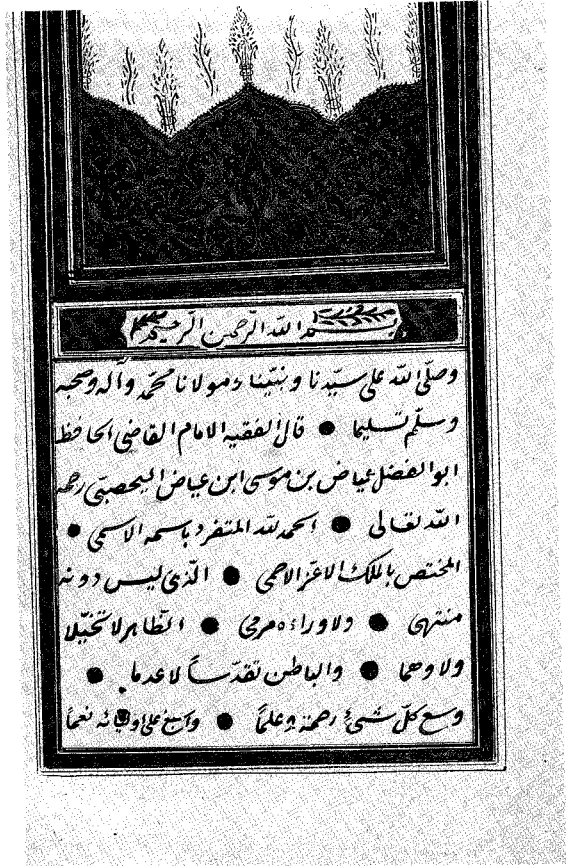 بسم الله الرّحمن الرّحيم
وصلّى الله على سيّدنا ونبيّنا ومولانا محمّد وآله وصحبه
وسلّم تسليما ● قال الفقيه الامام القاضى الحافظ
ابو الفضل عياض بن موسى ابن عياض اليحصبىّ رحمه
الله تعالى ● الحمد لله المتفرد باسمه الاسمى ●
المختص بالملك الاعزّ الاحمى ● الّذى ليس دونه
منتهى ● ولا وراءه مرمى ● الظّاهر لا تخيّلا
ولا وهما ● والباطن تقدّساً لا عدما ●
وسع كلّ شىءٍ رحمة وعلماً ● واسبغ على اوليائه نعماً